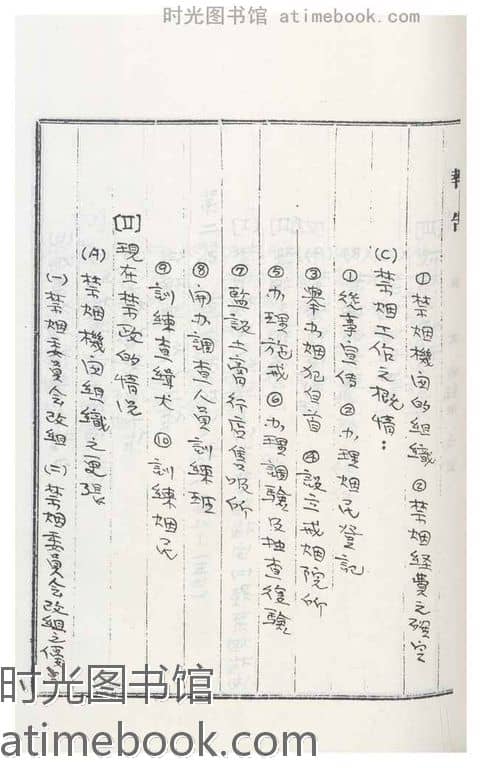 时光图书馆 atimebook.com
報告
① 禁烟機関的組織 ② 禁烟経費之確定
(C) 禁烟工作之概情：
① 從事宣傳 ② 办理烟民登記
③ 舉办烟犯自首 ④ 設立戒烟院所
⑤ 办理施戒 ⑥ 办理調驗及抽查復驗
⑦ 監設土膏行店售吸所
⑧ 開办調查人員訓練班
⑨ 訓練查緝犬 ⑩ 訓練烟民
[II] 現在禁政的情况
(A) 禁烟機関組織之更張
(一) 禁烟委員会改組 (二) 禁烟委員会改組之
时光图书馆
atimebook.com